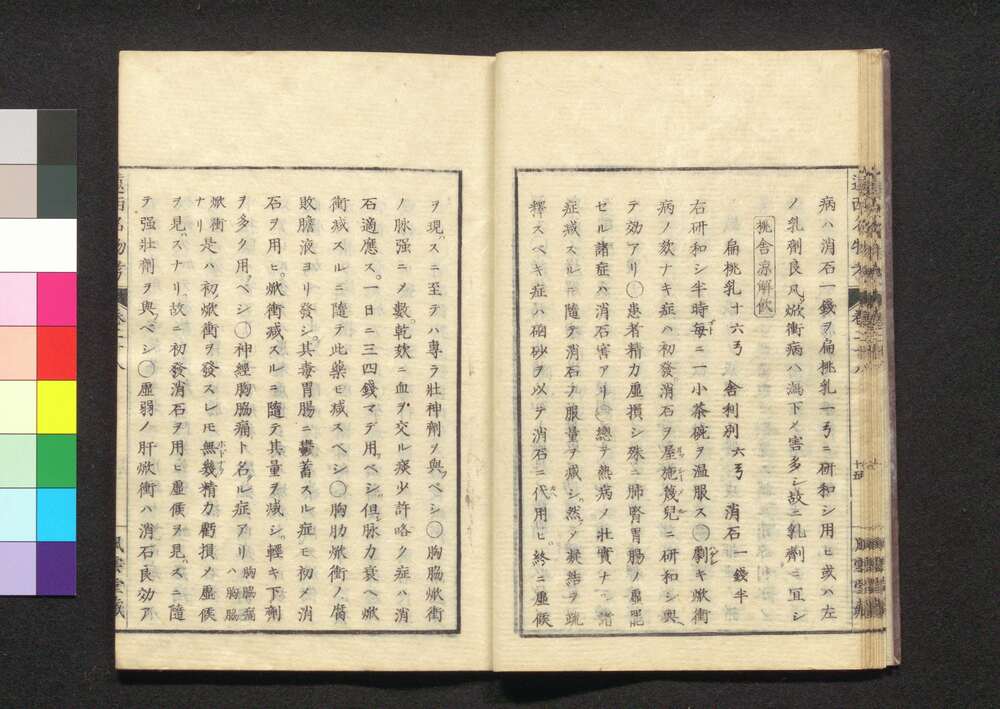 病ハ消石一錢ヲ扁桃乳十弓ニ研和シ用ヒ或ハ左
ノ乳劑良又焮衝病ハ瀉下メ害多シ故ニ乳劑ニ宜シ
桃舎凉解飲
扁桃乳十六弓 舎利別六弓 消石一錢半
右研和シ半時毎ニ一小茶碗ヲ温服ス○劇キ焮衝
病ノ熱ナキ症ハ初發消石ヲ屋施篾兒ニ研和シ與
テ効アリ○患者精力虚損シ殊ニ肺腎胃腸ノ虚罷
ゼル諸症ハ消石害アリ○總テ熱病ノ壯實ナル諸
症減スルニ隨テ消石ノ服量ヲ減ジ然メ凝結ヲ疏
釋スベキ症ハ硇砂ヲ以テ消石ニ代用ヒ終ニ虚候
ヲ現スニ至テハ專ラ壯神劑ヲ與ベシ○胸脇焮衝
ノ脉强ニメ數乾欬ニ血ヲ交ル痰少許咯ク症ハ消
石適應ス一日ニ三四錢マデ用ベシ但脉力衰ヘ焮
衝減スルニ隨テ此藥モ減スベシ○胸肋焮衝ノ腐
敗膽液ヨリ發シ其毒胃腸ニ鬱蓄スル症モ初メ消
石ヲ用ヒ焮衝減スルニ隨テ其量ヲ減シ輕キ下劑
ヲ多ク用ベシ○神經胸脇痛ト名ル症アリ 胸脇痛ハ胸脇
焮衝ナリ 是ハ初焮衝ヲ發スレ𪜈無幾精力虧損ノ虚候
ヲ見スナリ故ニ初發消石ヲ用ヒ虚候ヲ見スニ隨
テ强壯劑ヲ與ベシ○虚弱ノ肝焮衝ハ消石良効ア